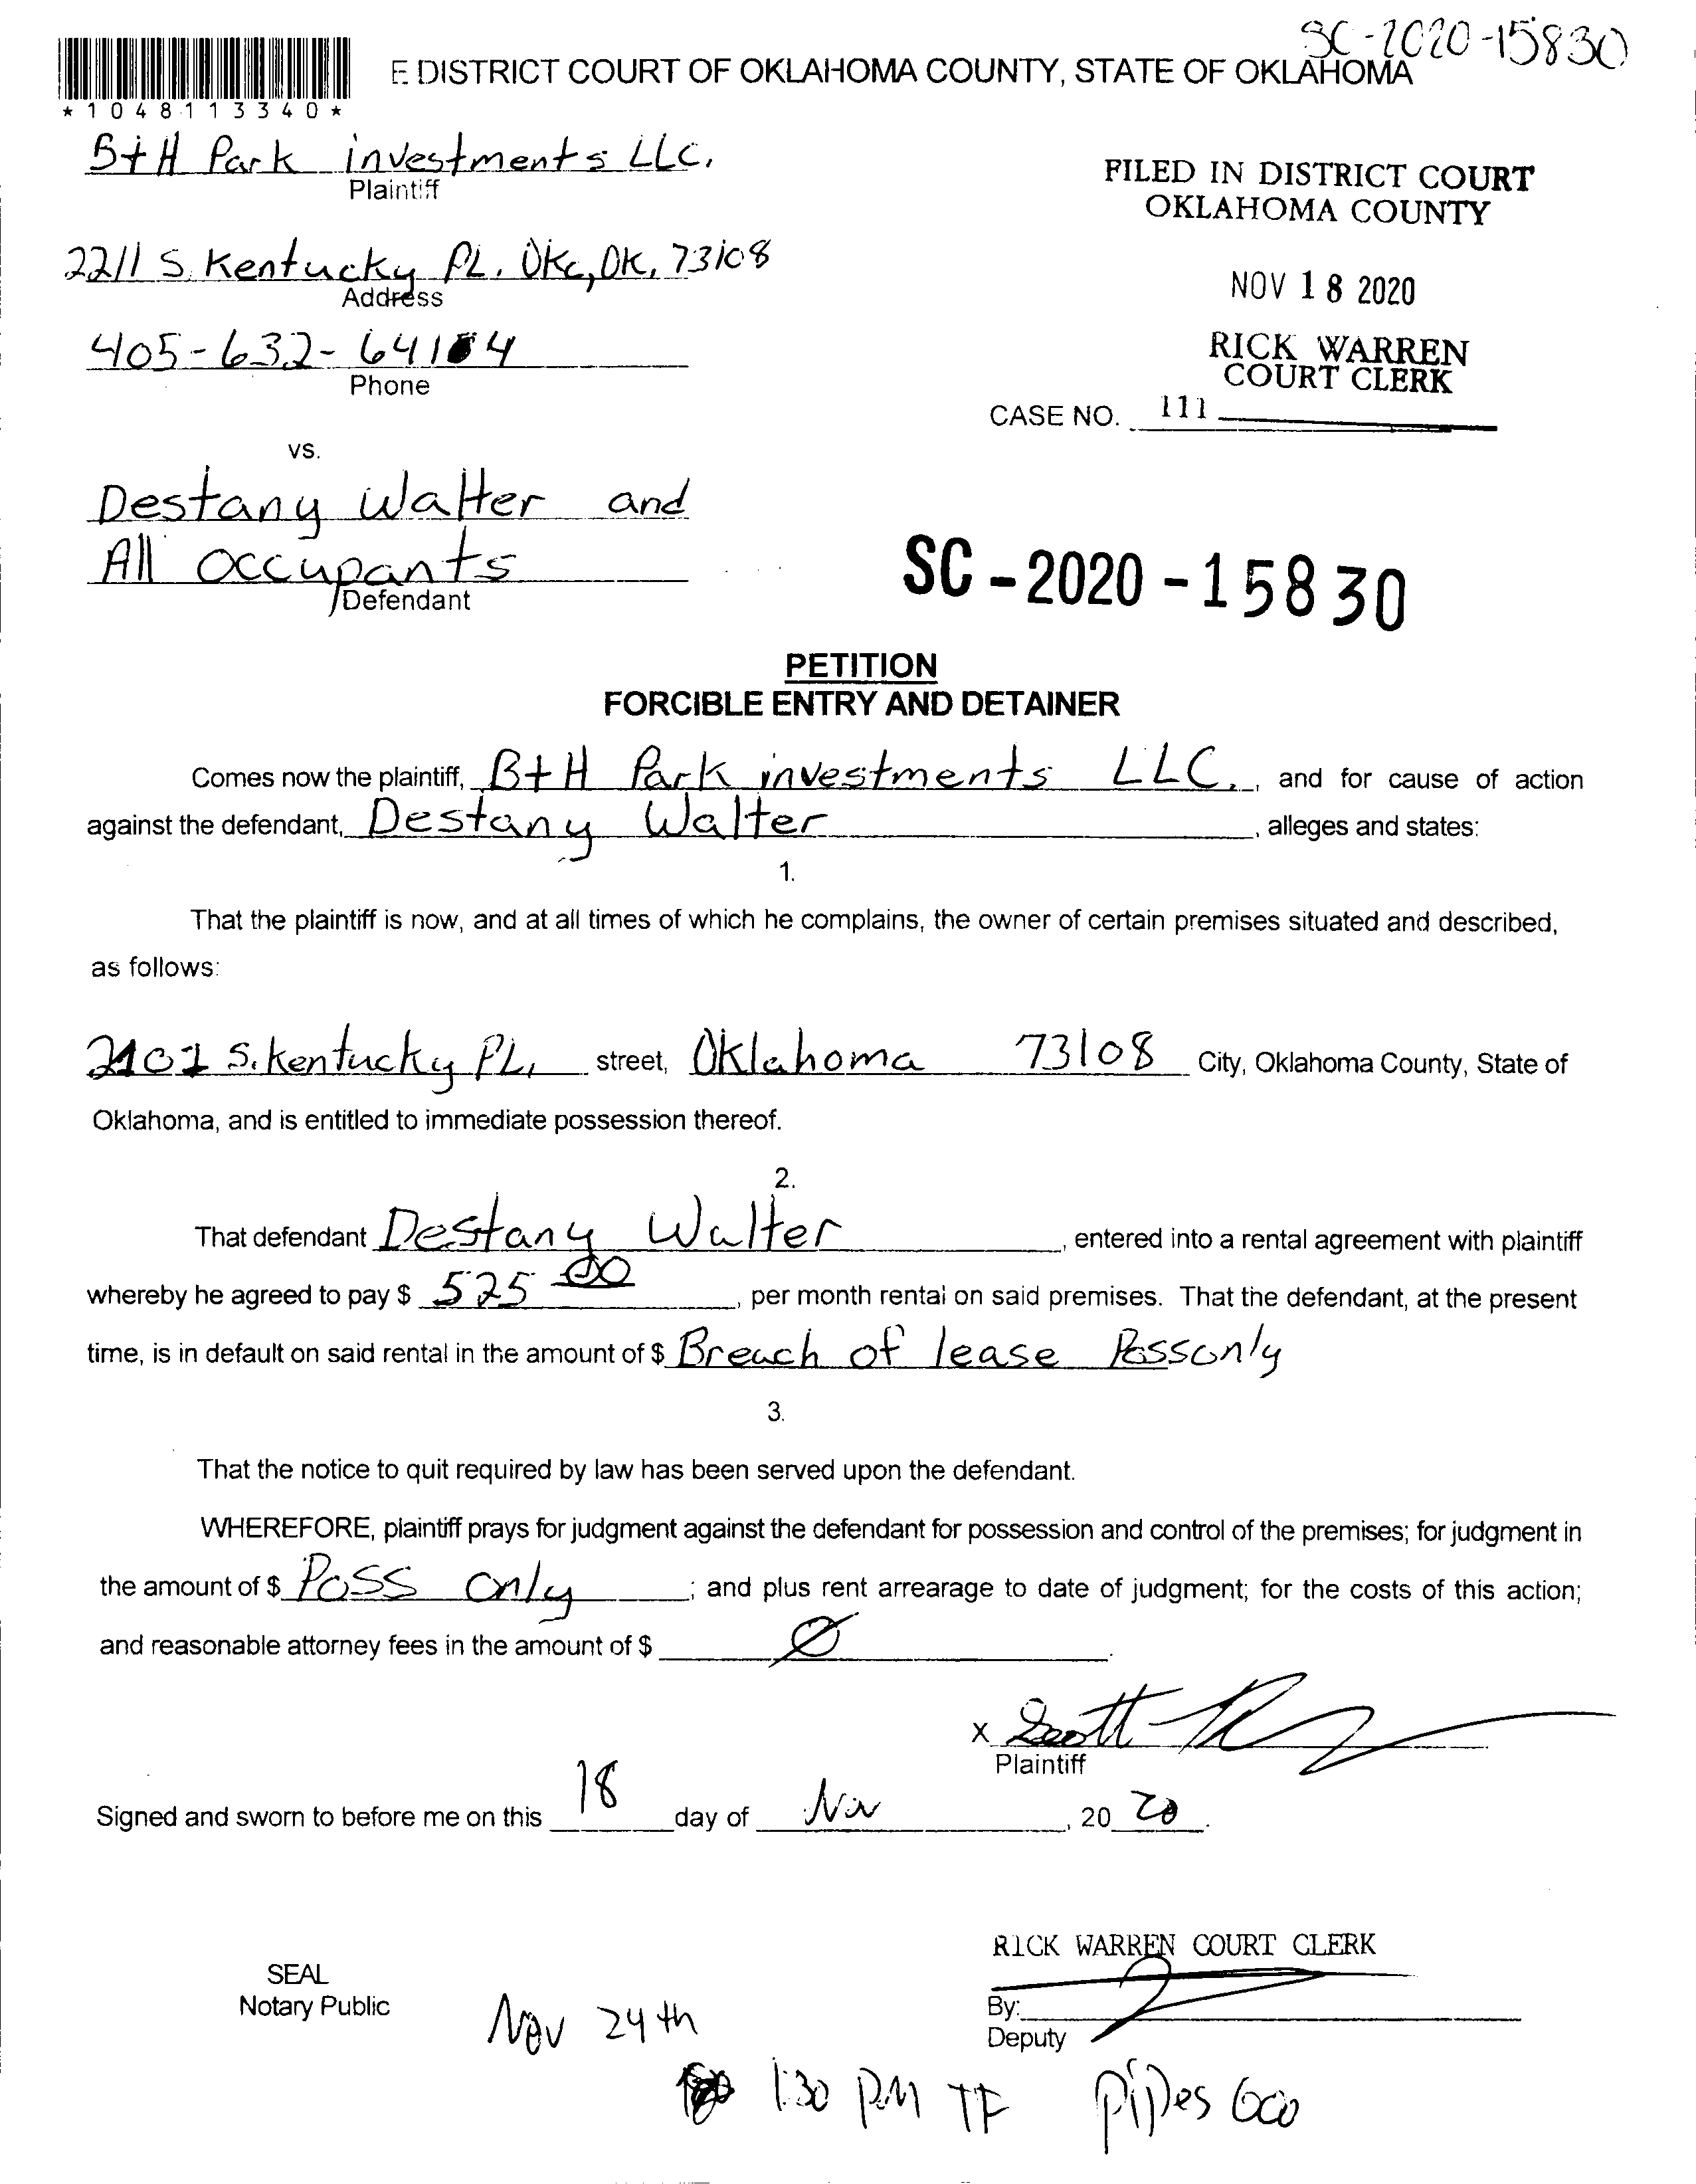 SC-2020-15830
E DISTRICT COURT OF OKLAHOMA COUNTY, STATE OF OKLAHOMA
*1048113340*
B+H Park investments LLC.
Plaintiff
FILED IN DISTRICT COURT
OKLAHOMA COUNTY
2211 S. Kentucky PL. OKc, OK, 73108
Address
NOV 18 2020
405-632-64
Phone
RICK WARREN
COURT CLERK
CASE NO. 111
vs.
Destany Walter and
All Occupants
Defendant
SC-2020-15830
PETITION
FORCIBLE ENTRY AND DETAINER
Comes now the plaintiff, B+H Park investments LLC., and for cause of action
against the defendant, Destany Walter, alleges and states:
1.
That the plaintiff is now, and at all times of which he complains, the owner of certain premises situated and described,
as follows:
S. Kentucky PL, street, Oklahoma 73108 City, Oklahoma County, State of
Oklahoma, and is entitled to immediate possession thereof.
2.
That defendant Destany Walter, entered into a rental agreement with plaintiff
whereby he agreed to pay $ 525 00, per month rental on said premises. That the defendant, at the present
time, is in default on said rental in the amount of $ Breach of lease Poss only
3.
That the notice to quit required by law has been served upon the defendant.
WHEREFORE, plaintiff prays for judgment against the defendant for possession and control of the premises; for judgment in
the amount of $ Poss only; and plus rent arrearage to date of judgment; for the costs of this action;
and reasonable attorney fees in the amount of $ Ø.
x Scott
Plaintiff
Signed and sworn to before me on this 18 day of Nov, 20 20.
RICK WARREN COURT CLERK
SEAL
Notary Public
By:
Deputy
Nov 24th
1:30 PM TF Pipes 600